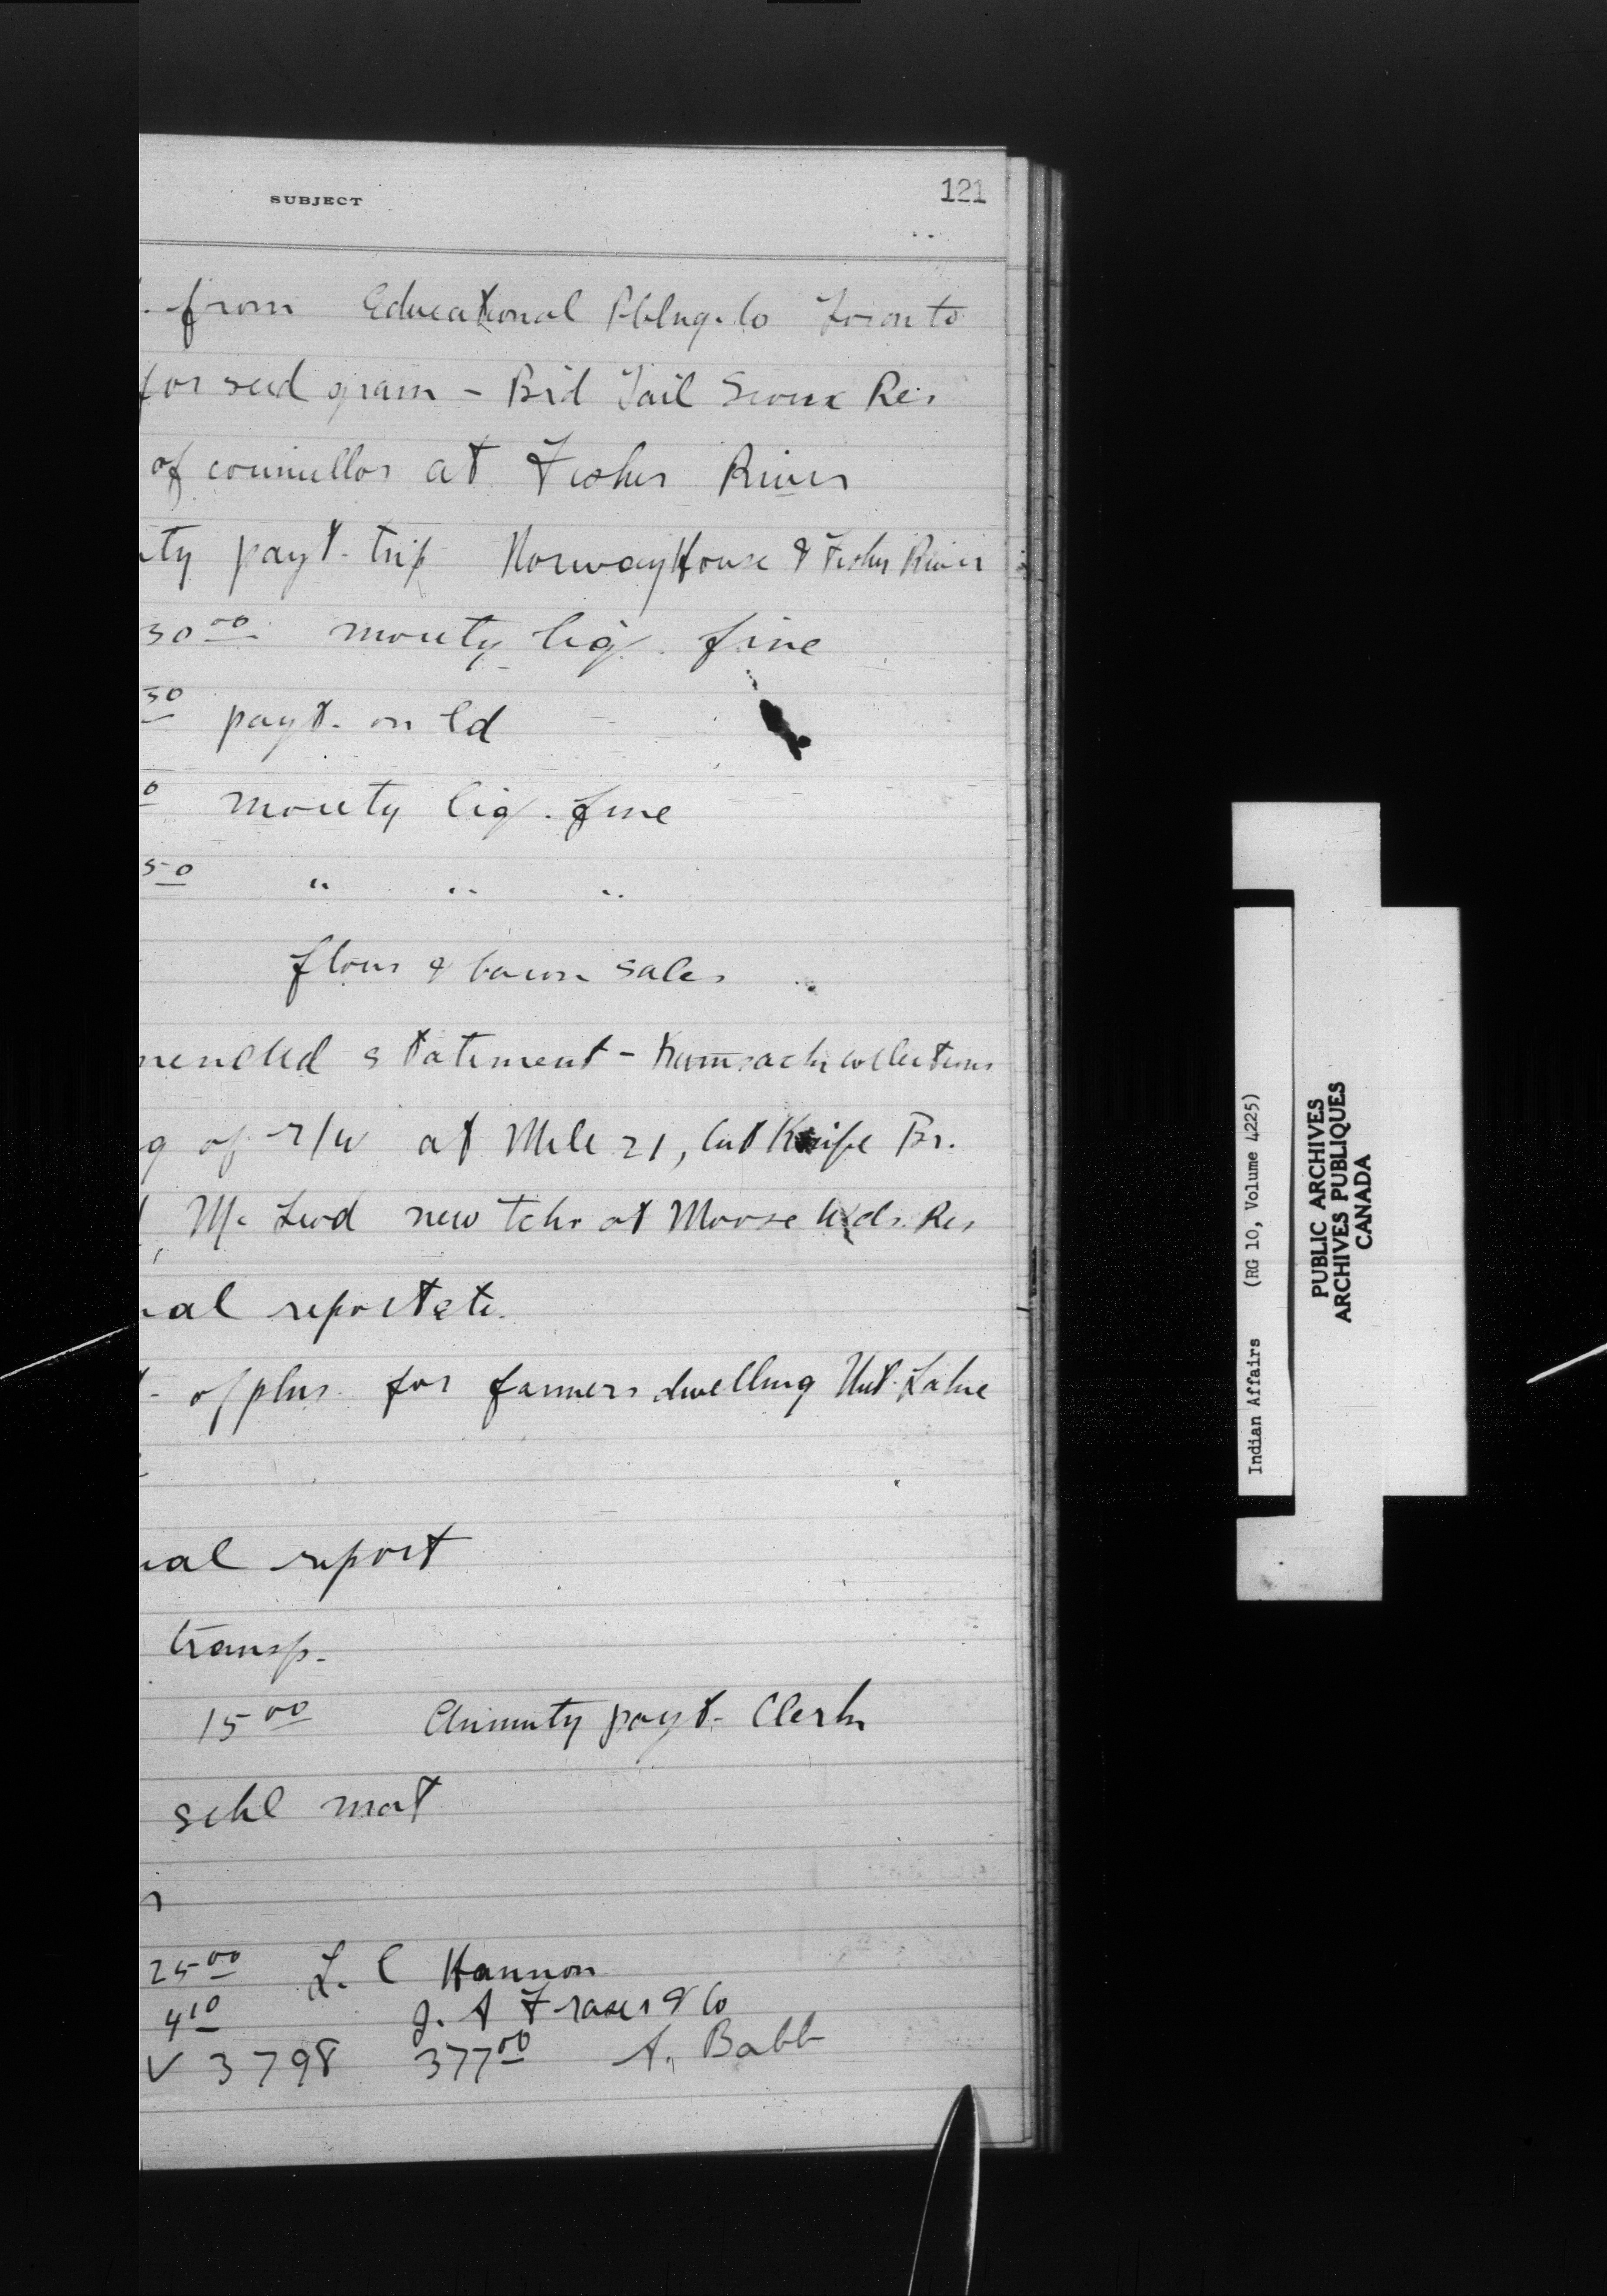 SUBJECT
121
. from Educational Pblng. Co Toronto
for seed grain - Bird Tail Sioux Res
of councillor at Fisher River
ity payt. trip Norway House & Fisher River
30 00 moiety liq. fine
50 payt. on ld
0 moiety liq. fine
50 " " "
flour & bacon sales
mended statement - Kamsack collections
g of r/w at Mile 21, Cut Knife Br.
McLeod new tchr at Moose Wds. Res
ual report etc.
of plns. for farmers dwelling Nut Lake
ual report
transp.
15 00 Annuity payt. Clerk
schl mat
25 00 L. C Hannon
4 10 J. A Fraser & Co
✓ 3798 377 00 A. Babb
Indian Affairs (RG 10, Volume 4225)
PUBLIC ARCHIVES
ARCHIVES PUBLIQUES
CANADA